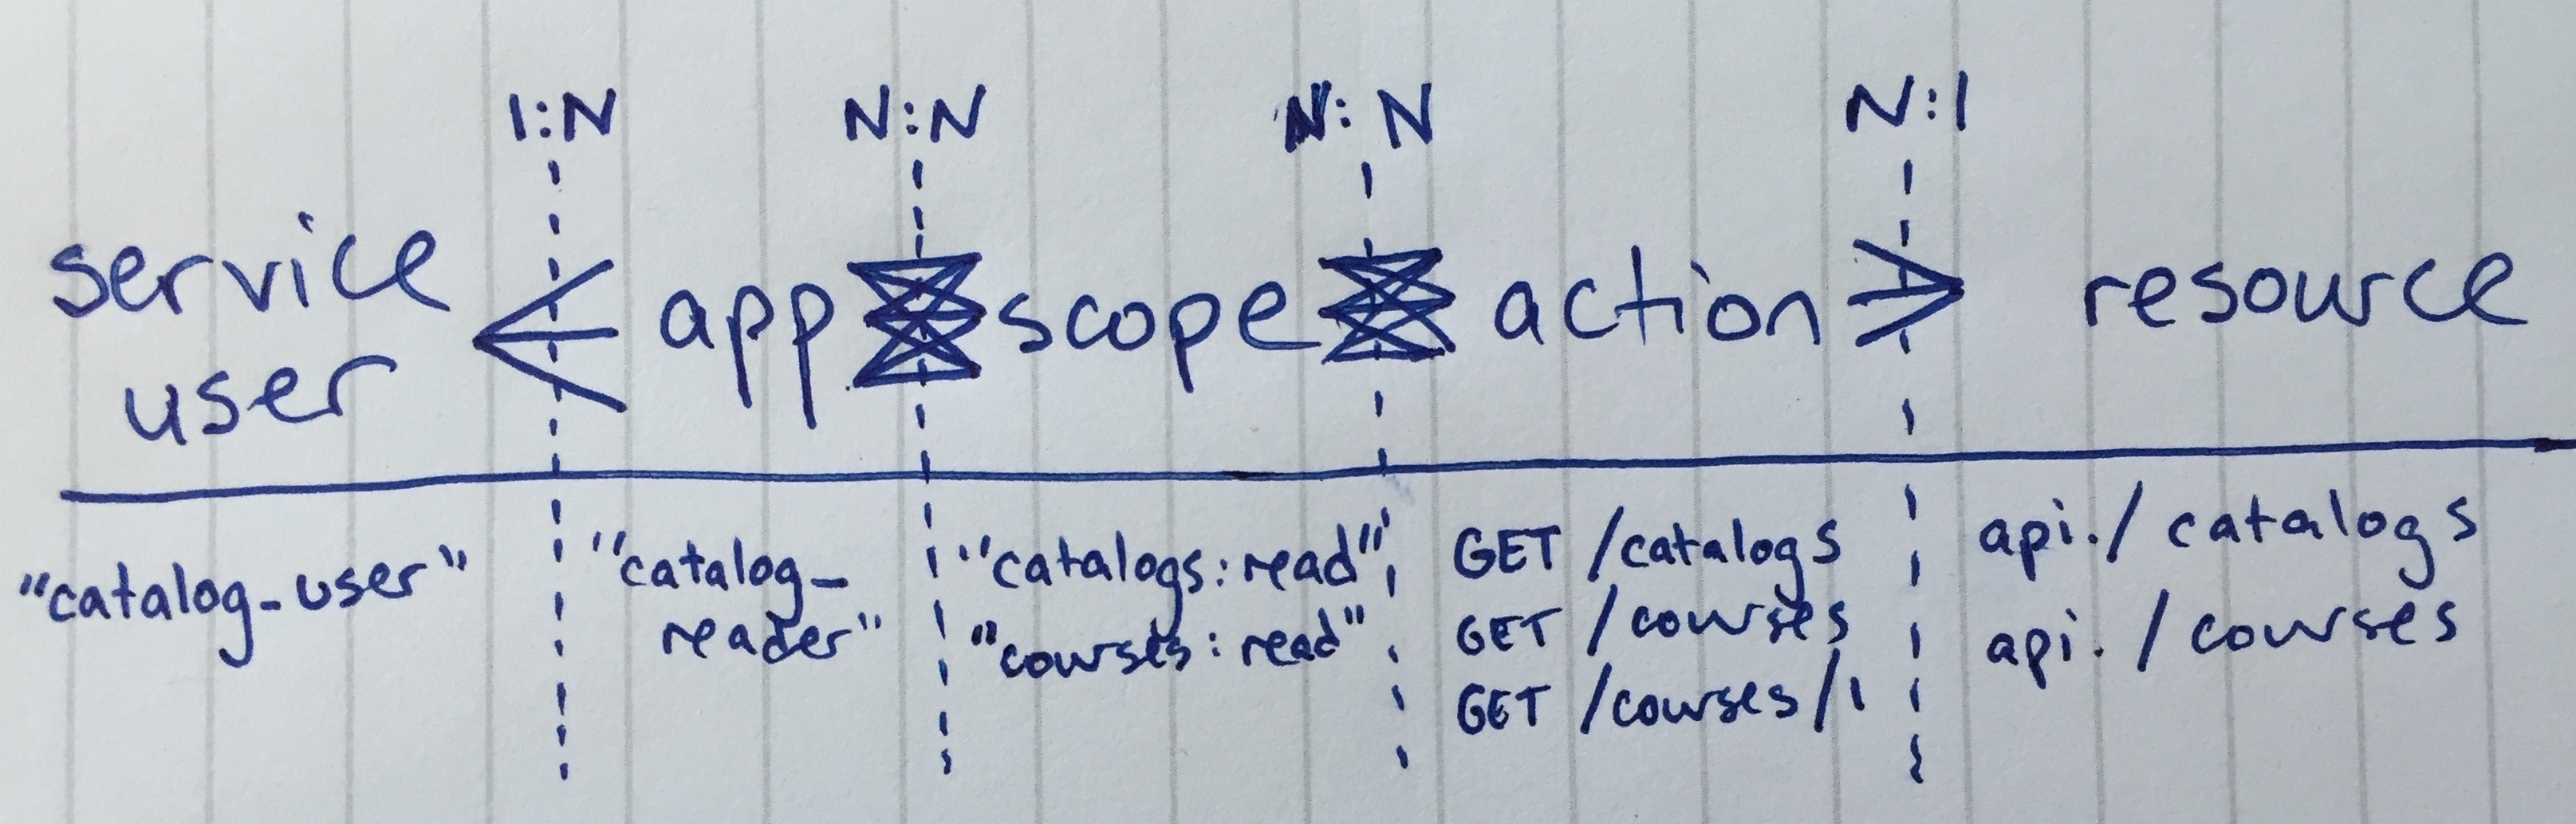 1:N N:N N:N N:1
service
user
app scope action resource
"catalog_user"
"catalog_
reader"
"catalogs:read"
"courses:read"
GET /catalogs
GET /courses
GET /courses/1
api./catalogs
api./courses